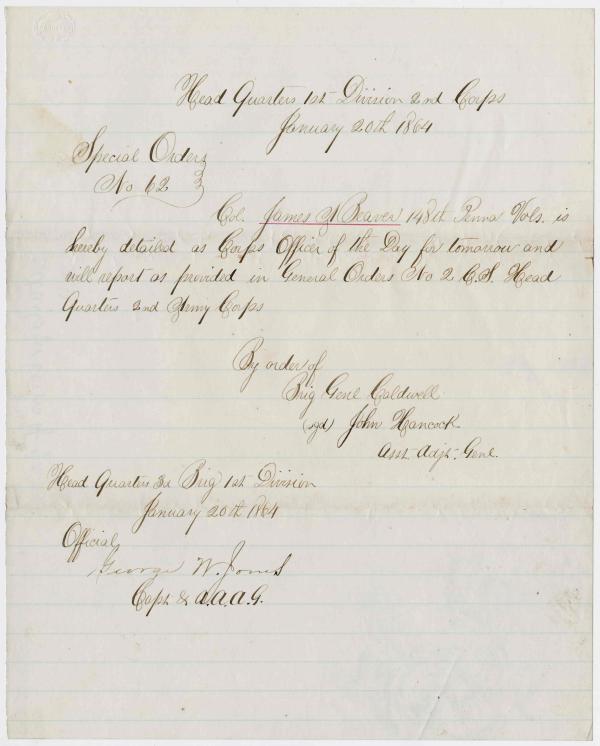 Head Quarters 1st Division 2nd Corps
January 20th 1864
Special Orders
No 62
Col. James A Beaver 148th Penna Vols. is
hereby detailed as Corps Officer of the Day for tomorrow and
will report as provided in General Orders No 2 C.S. Head
Quarters 2nd Army Corps
By order of
Brig Genl Caldwell
(sgd) John Hancock
Asst. Adjt. Genl.
Head Quarters 3d Brig 1st Division
January 20th 1864
Official
George W. Jones
Capt & A.A.A.G.